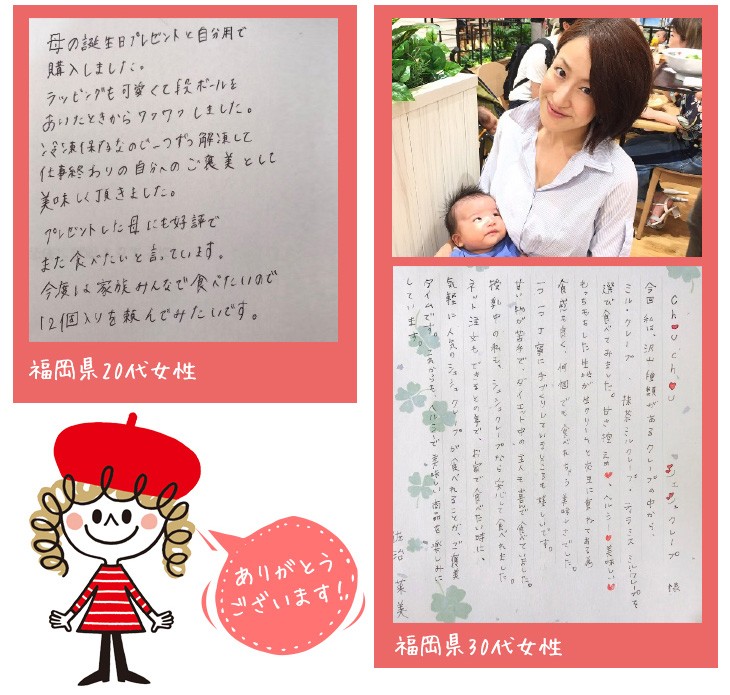 母の誕生日プレゼントと自分用で
購入しました。
ラッピングも可愛くて段ボールを
あいたときからワクワクしました。
冷凍保存なので一つずつ解凍して
仕事終わりの自分へのご褒美として
美味しく頂きました。
プレゼントした母にも好評で
また食べたいと言っています。
今度は家族みんなで食べたいので
12個入りを頼んでみたいです。
福岡県20代女性
ありがとう
ございます!
chou chou シュシュクレープ 様
今回私は、沢山種類があるクレープの中から、
ミルクレープ、抹茶ミルクレープ・ティラミスミルクレープを
選び食べてみました。甘さ控えめ、ヘルシー美味しい
もっちもちした生地が生クリームと交互に重なってある為
食感も良く、何個でも食べれちゃう美味しさでした。
一つ一つ丁寧に手づくりしているところも嬉しいです。
甘い物が苦手で、ダイエット中の主人も喜んで食べていました。
授乳中の私も、シュシュクレープなら安心して食べれました。
ネット注文も、できるとの事で、お家で食べたい時に、
気軽に人気のシュシュクレープが食べれることが、ご褒美
タイムです。これからも、べんりで美味しい商品を楽しみに
しています。
福岡県30代女性